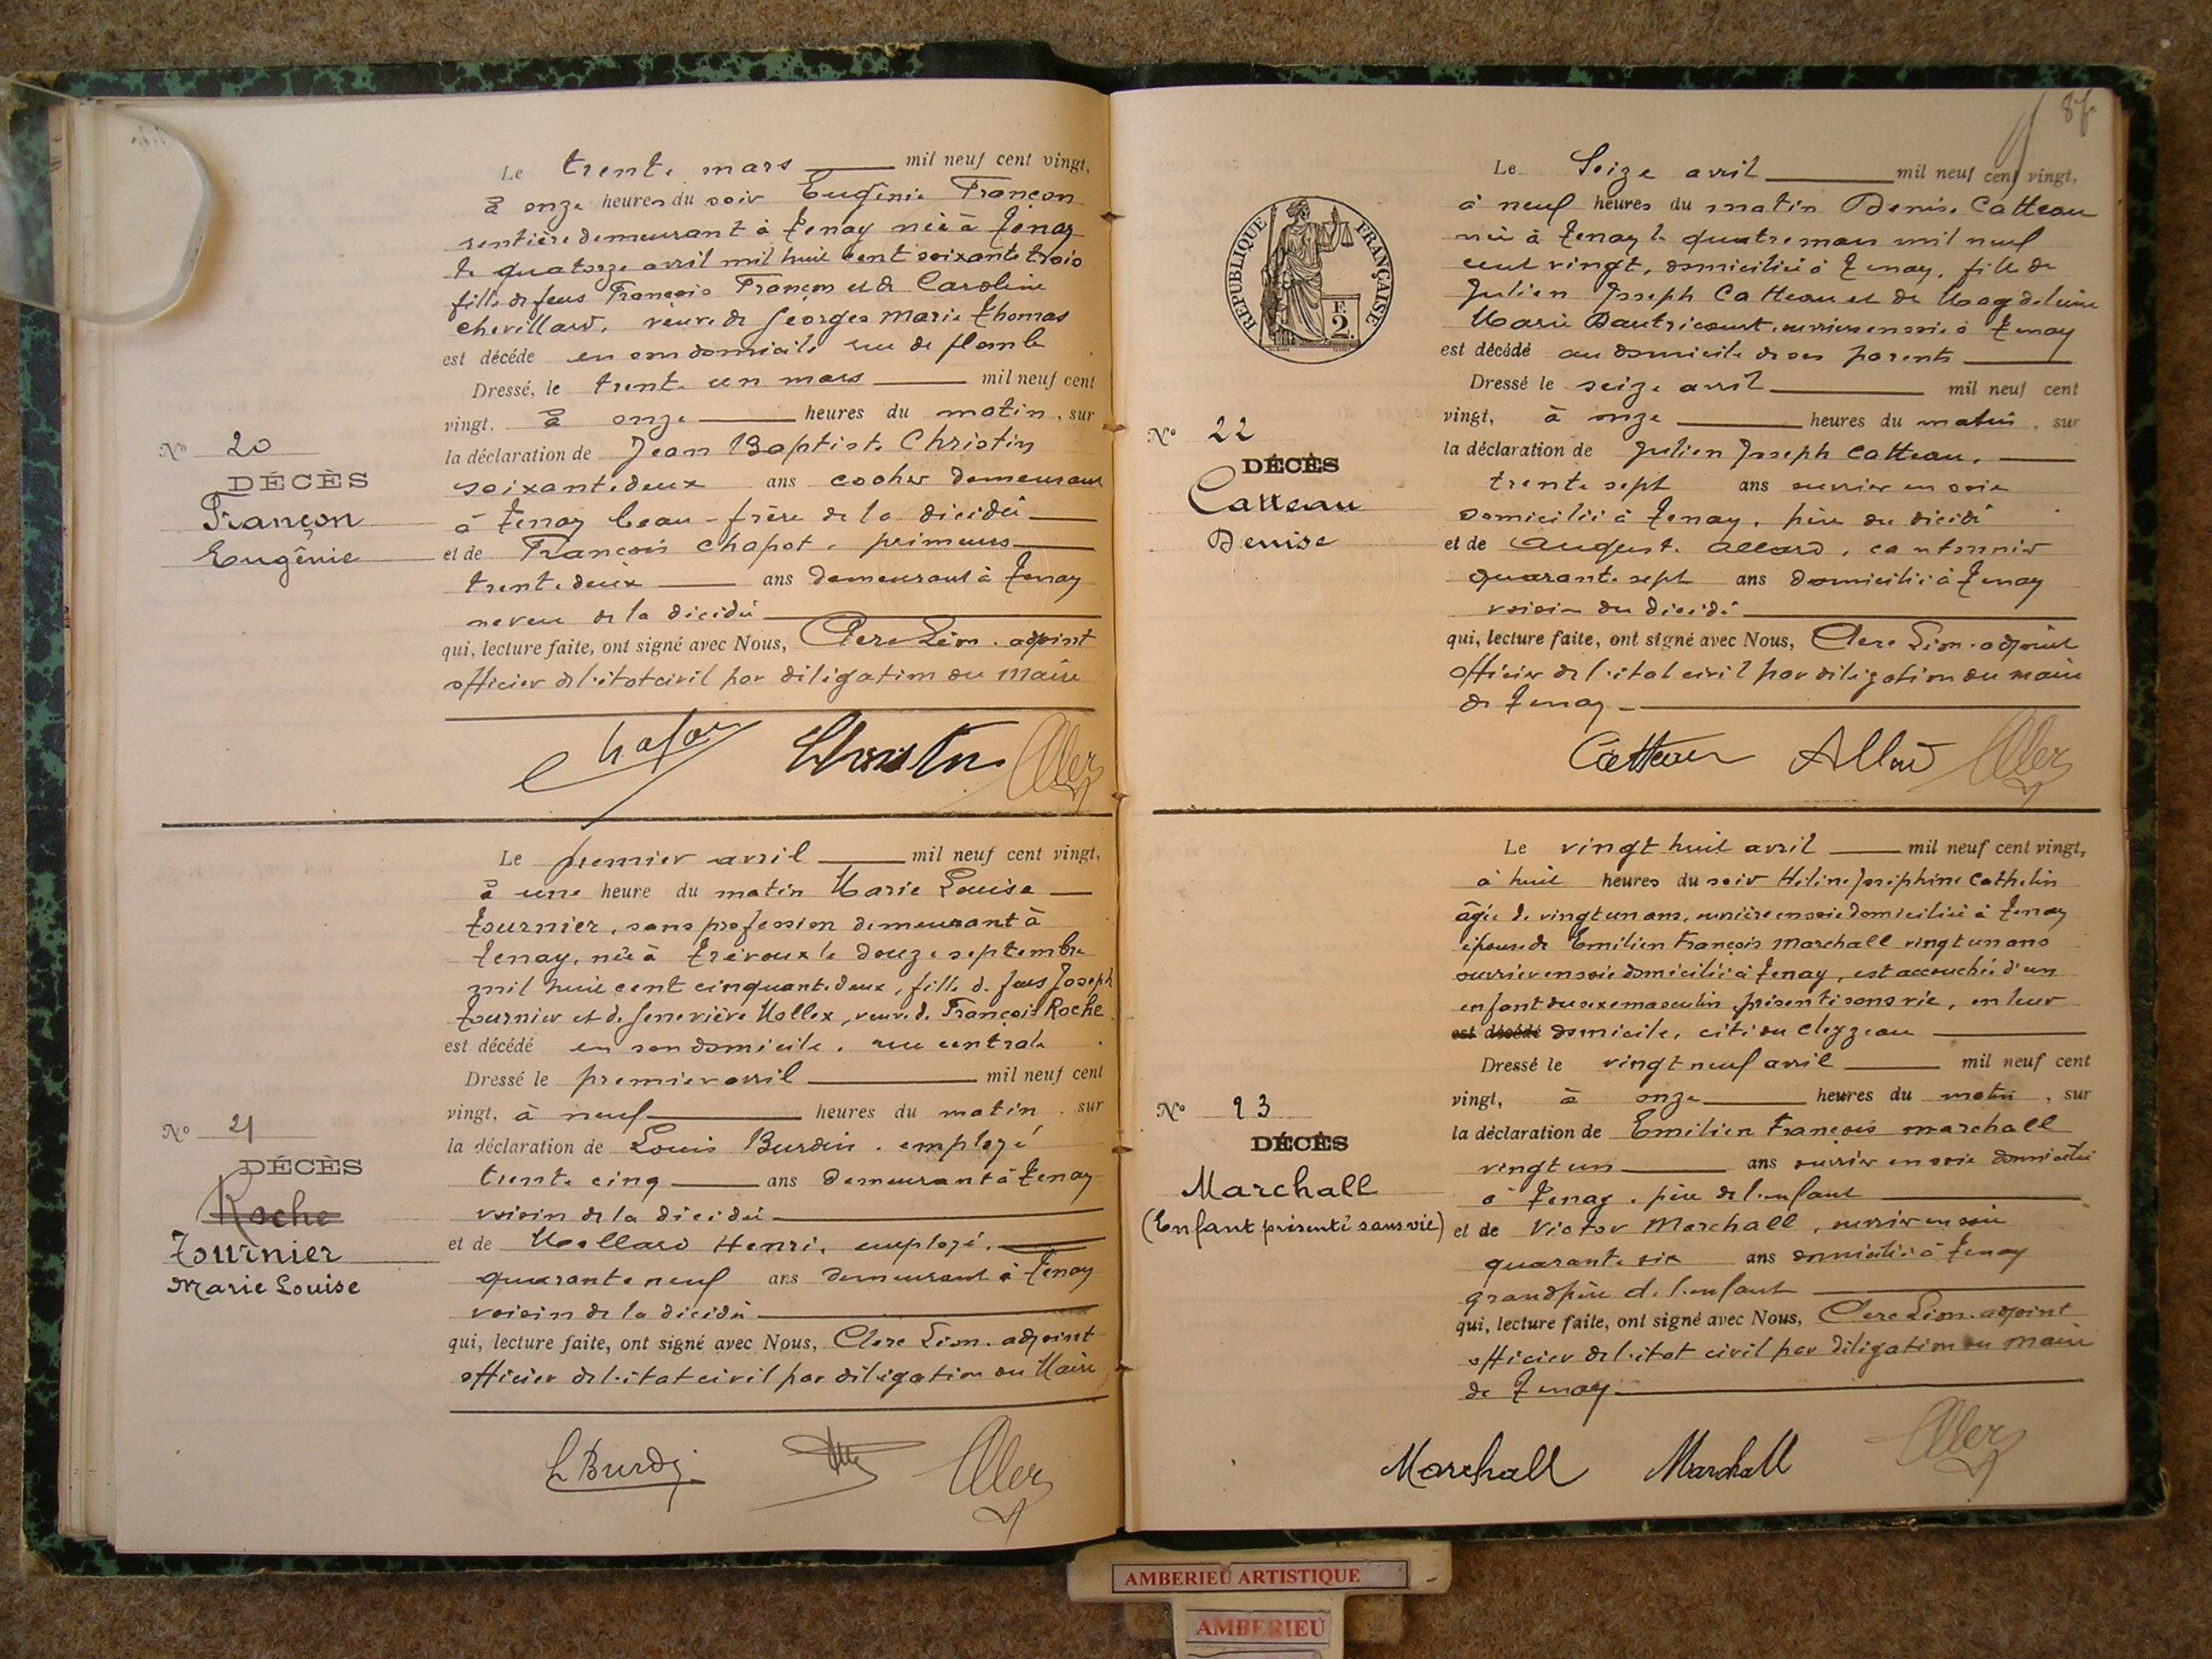 Le trente mars mil neuf cent vingt,
à onze heures du soir Eugénie Françon
rentière demeurant à Tenay née à Tenay
le quatorze avril mil huit cent soixante trois
fille de feus François Françon et de Caroline
Chevillard, veuve de Georges Marie Thomas
est décédé en son domicile rue de plomb
Dressé, le trente un mars mil neuf cent
vingt, à onze heures du matin, sur
la déclaration de Jean Baptiste Christin
soixante deux ans cocher demeurant
à Tenay beau-frère de la décédée
et de François Chapot, primeurs
trente deux ans demeurant à Tenay
neveu de la décédée
qui, lecture faite, ont signé avec Nous, Clerc Léon, adjoint
officier de l'état civil par délégation du Maire
Nº 20
DÉCÈS
Françon
Eugénie
Christin
Le premier avril mil neuf cent vingt,
à une heure du matin Marie Louise
Tournier, sans profession demeurant à
Tenay, née à Trévoux le douze septembre
mil huit cent cinquante deux, fille de feus Joseph
Tournier et de Geneviève Mollex, veuve de François Roche
est décédé en son domicile, rue centrale
Dressé le premier avril mil neuf cent
vingt, à neuf heures du matin, sur
la déclaration de Louis Burdin, employé
trente cinq ans demeurant à Tenay
voisin de la décédée
et de Mollard Henri, employé,
quarante neuf ans demeurant à Tenay
voisin de la décédée
qui, lecture faite, ont signé avec Nous, Clerc Léon, adjoint
officier de l'état civil par délégation du Maire
Nº 21
DÉCÈS
Roche
Tournier
Marie Louise
L Burdin
Le Seize avril mil neuf cent vingt,
à neuf heures du matin Denise Catteau
née à Tenay le quatre mars mil neuf
cent vingt, domiciliée à Tenay, fille de
Julien Joseph Catteau et de Magdeleine
Marie Dautricourt, ouvriers en soie à Tenay
est décédé au domicile de ses parents
Dressé le seize avril mil neuf cent
vingt, à onze heures du matin, sur
la déclaration de Julien Joseph Catteau,
trente sept ans ouvrier en soie
domicilié à Tenay, père du décédé
et de August. Allard, cantonnier
quarante sept ans domicilié à Tenay
voisin du décédé
qui, lecture faite, ont signé avec Nous, Clerc Léon, adjoint
officier de l'état civil par délégation du maire
de Tenay
RÉPUBLIQUE FRANÇAISE
E
2.
Nº 22
DÉCÈS
Catteau
Denise
Catteau Allard
Le vingt huit avril mil neuf cent vingt,
à huit heures du soir Hélène Joséphine Cathelin
âgée de vingt un ans, ouvrière en soie domiciliée à Tenay
épouse de Emilien François Marchall vingt un ans
ouvrier en soie domicilié à Tenay, est accouchée d'un
enfant du sexe masculin, présenté sans vie, en leur
est décédé domicile, cité du Cleyzeau
Dressé le vingt neuf avril mil neuf cent
vingt, à onze heures du matin, sur
la déclaration de Emilien François Marchall
vingt un ans ouvrier en soie domicilié
à Tenay, père de l'enfant
et de Victor Marchall, ouvrier en soie
quarante six ans domicilié à Tenay
grand père de l'enfant
qui, lecture faite, ont signé avec Nous, Clerc Léon, adjoint
officier de l'état civil par délégation du maire
de Tenay
Nº 23
DÉCÈS
Marchall
(Enfant présenté sans vie)
Marchall Marchall
AMBERIEU ARTISTIQUE
AMBERIEU